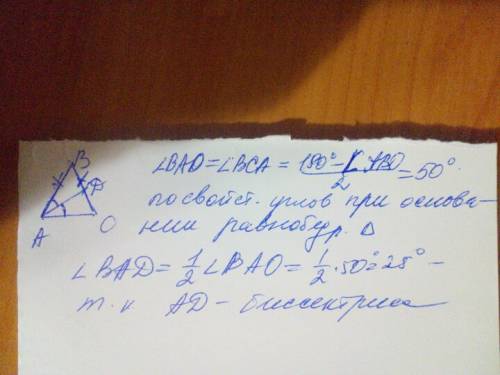 B
D
A
O
∠BAO = ∠BCA = (180° - ∠ABO)/2 = 50°.
по свойст. углов при основа-
нии равнобедр. Δ
∠BAD = 1/2 ∠BAO = 1/2 · 50° = 25° -
т. к. AD - биссектриса